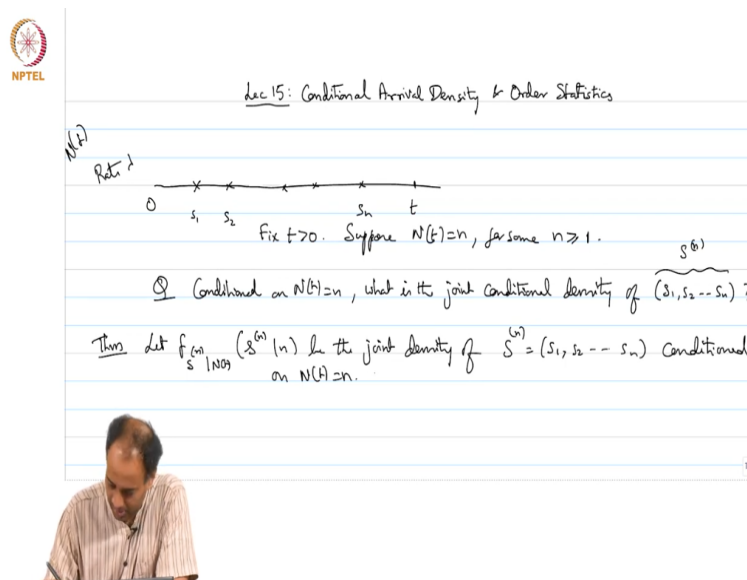 NPTEL
Lec 15: Conditional Arrival Density & Order Statistics
N(t)
Rate λ
0 S₁ S₂ Sₙ t
Fix t>0. Suppose N(t)=n, for some n≥1.
S⁽ⁿ⁾
Q Conditional on N(t)=n, what is the joint conditional density of (S₁, S₂ -- Sₙ) ?
Thm Let f_{S⁽ⁿ⁾|N(t)} (s⁽ⁿ⁾|n) be the joint density of S⁽ⁿ⁾ = (S₁, S₂ -- Sₙ) conditioned
on N(t)=n.